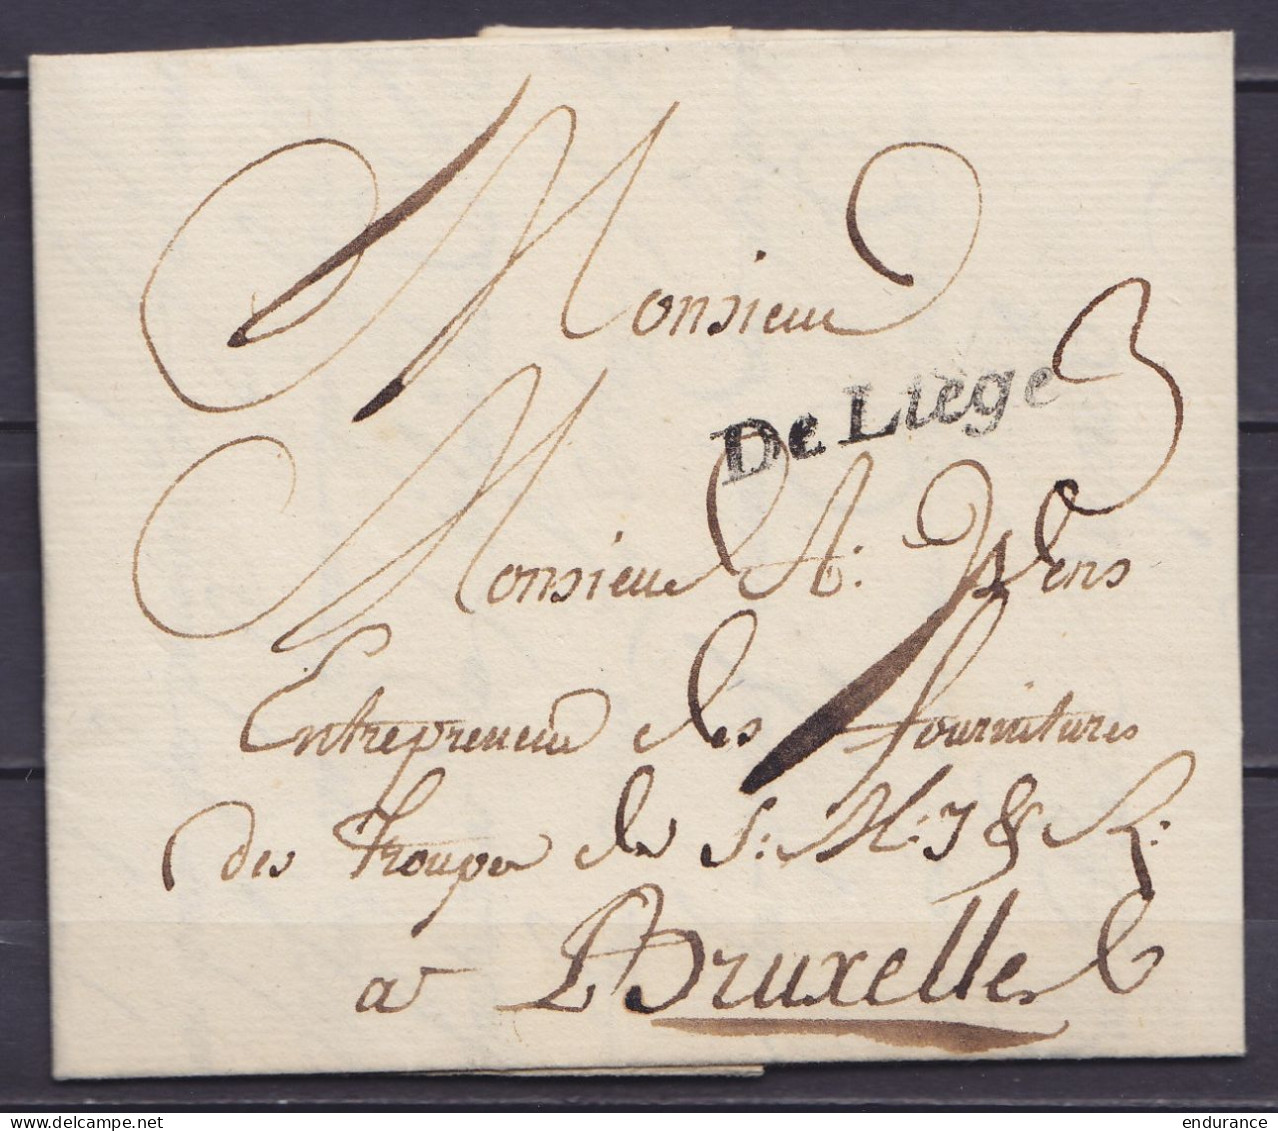 Monsieur
De Liège
3
Monsieur A:
Entrepreneur des fournitures
des Troupes de S: M: J & R:
a Bruxelles
delcampe.net
endurance